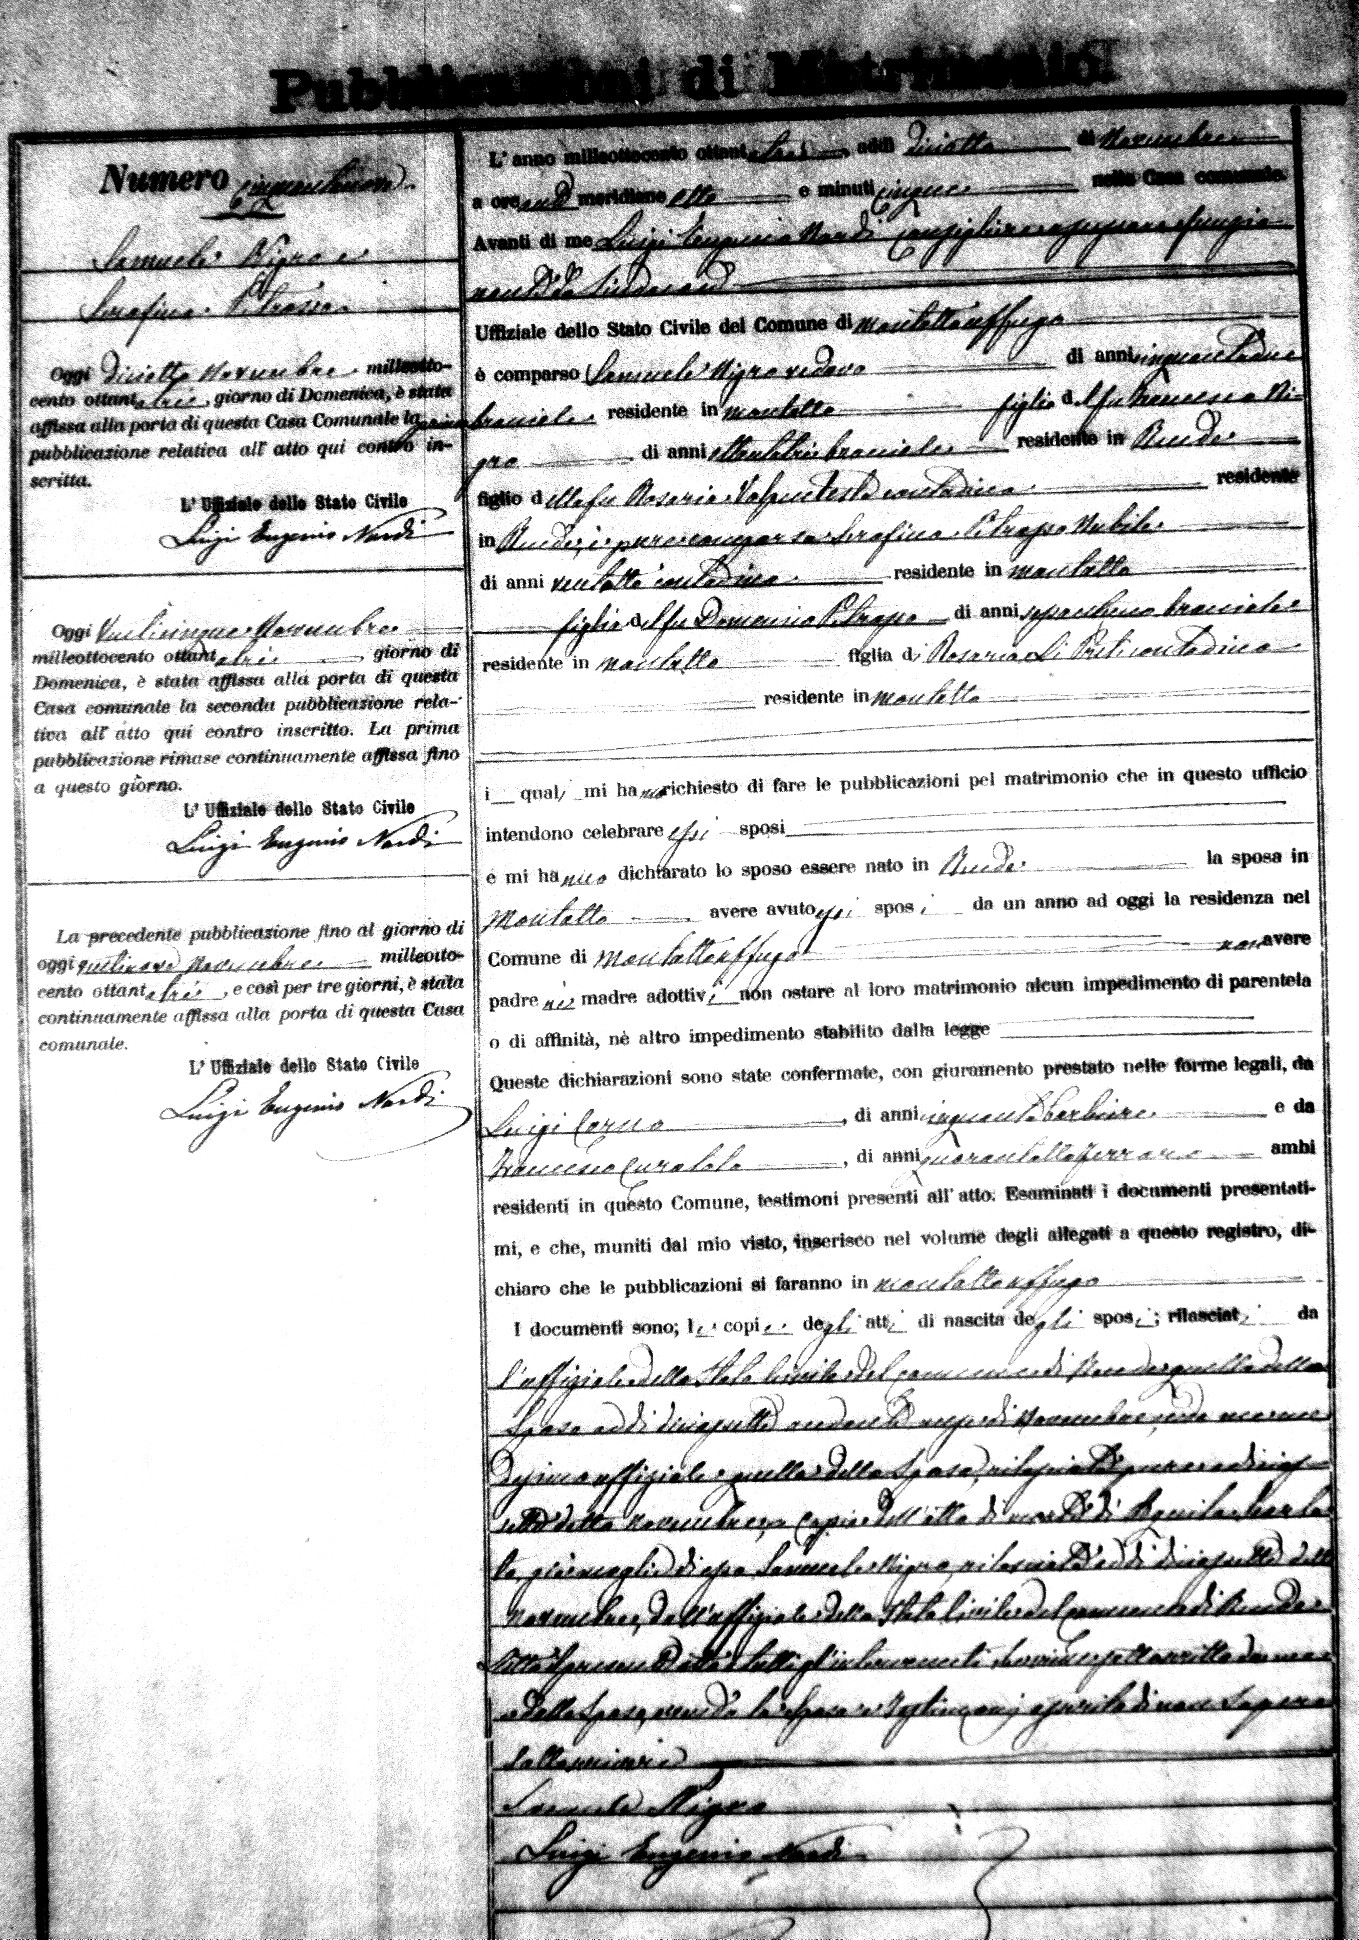 Pubblicazioni di Matrimonio
Numero Cinquantanove
Samuele Nigro e
Serafina Petrasso
Oggi diciotto Novembre milleotto-
cento ottantatrè, giorno di Domenica, è stata
affissa alla porta di questa Casa Comunale la prima
pubblicazione relativa all' atto qui contro in-
scritta.
L' Uffiziale dello Stato Civile
Luigi Eugenio Nardi
Oggi Venticinque Novembre
milleottocento ottantatrè giorno di
Domenica, è stata affissa alla porta di questa
Casa comunale la seconda pubblicazione rela-
tiva all' atto qui contro inscritto. La prima
pubblicazione rimase continuamente affissa fino
a questo giorno.
L' Uffiziale dello Stato Civile
Luigi Eugenio Nardi
La precedente pubblicazione fino al giorno di
oggi ventinove Novembre milleotto-
cento ottantatrè, e così per tre giorni, è stata
continuamente affissa alla porta di questa Casa
comunale.
L' Uffiziale dello Stato Civile
Luigi Eugenio Nardi
L' anno milleottocento ottantatrè, addì diciotto di Novembre
a ore anti meridiane otto e minuti cinque nella Casa comunale.
Avanti di me Luigi Eugenio Nardi Consigliere anziano funzio
nante da Sindaco
Uffiziale dello Stato Civile del Comune di Montaltouffugo
è comparso Samuele Nigro vedovo di anni cinquantadue
bracciale residente in Montalto figlio del fu Francesco Ni-
gro di anni ottantatrè bracciale residente in Rende
figlio della fu Rosaria contadina residente
in Rende, è pure comparsa Serafina Petrasso Nubile
di anni ventotto contadina residente in Montalto
figlia del fu Domenico Petrasso di anni sessantuno bracciale
residente in Montalto figlia di Rosaria Li Preti contadina
residente in Montalto
i quali mi hanno richiesto di fare le pubblicazioni pel matrimonio che in questo ufficio
intendono celebrare essi sposi
e mi hanno dichiarato lo sposo essere nato in Rende la sposa in
Montalto avere avuto essi sposi da un anno ad oggi la residenza nel
Comune di Montaltouffugo non avere
padre nè madre adottivi non ostare al loro matrimonio alcun impedimento di parentela
o di affinità, nè altro impedimento stabilito dalla legge
Queste dichiarazioni sono state confermate, con giuramento prestato nelle forme legali, da
Luigi Corno, di anni cinquanta barbiere e da
Francesco Curatolo, di anni quarantotto ferraro ambi
residenti in questo Comune, testimoni presenti all' atto. Esaminati i documenti presentati-
mi, e che, muniti dal mio visto, inserisco nel volume degli allegati a questo registro, di-
chiaro che le pubblicazioni si faranno in Montaltouffugo
I documenti sono; le copie degli atti di nascita degli sposi; rilasciati da
l'uffiziale dello Stato Civile del comune di Rende quella dello
Sposo addì diciassette andante mese di Novembre, e da me me
desimo uffiziale quella della Sposa, rilasciata pure a dicias
sette detto Novembre, copia dell'atto di morte di
già moglie di esso Samuele Nigro, rilasciata addì diciassette detto
Novembre, dall'uffiziale dello Stato Civile del comune di Rende
Letto il presente atto a tutti gl'intervenuti, sottoscritto da me
e dallo Sposo, avendo la Sposa e testimonj asserito di non sapere
sottoscrivere
Samuele Nigro
Luigi Eugenio Nardi